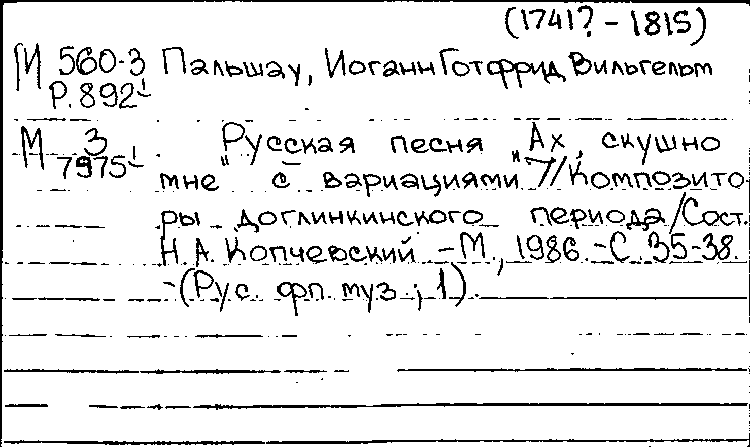 (1741? - 1815)
М 560-3 Пальшау, Иоганн Готфрид Вильгельм
Р.892¹
М 3/7975¹ „Русская песня „Ах, скушно
мне" с вариациями"//Композито-
ры доглинкинского периода/Сост.
Н.А. Копчевский - М., 1986. - С. 35-38.
- (Рус. фп. муз.; 1).